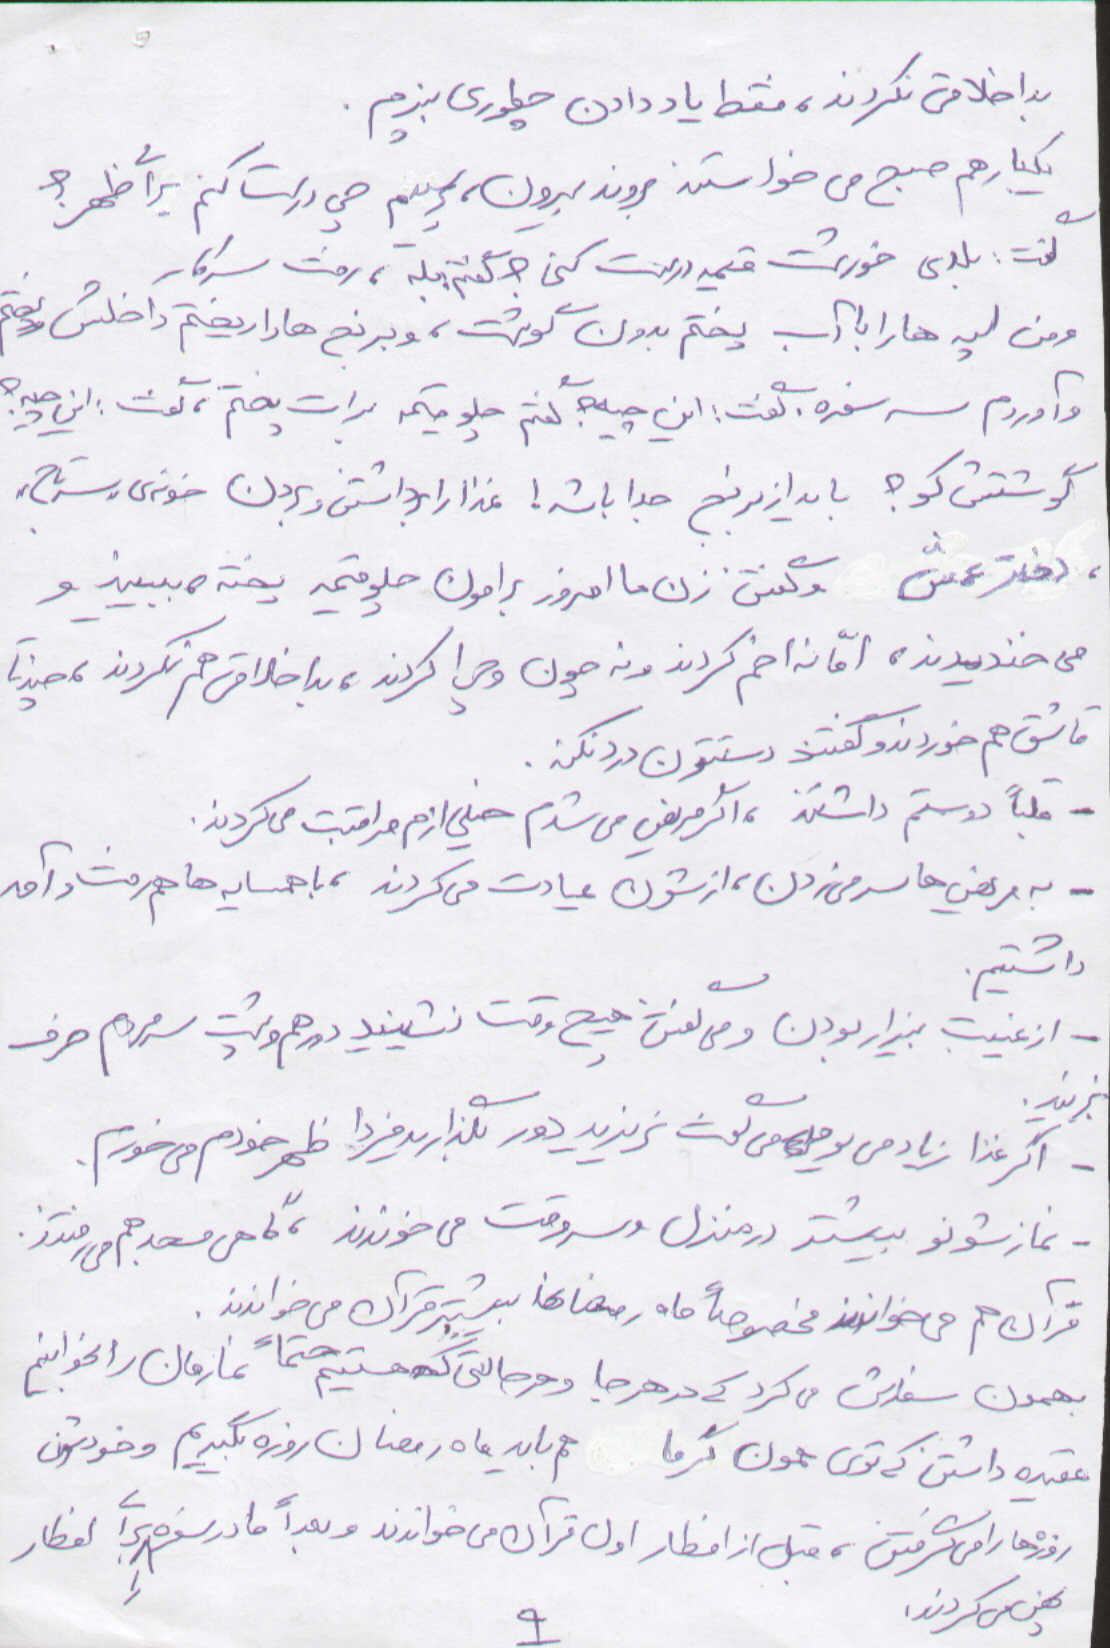 بداخلاقی نکردند، فقط یاد دادن چطوری بپزم.
یکبار هم صبح می خواستند بروند بیرون، پرسیدم چی درست کنم برا ظهر؟
گفت: بلدی خورشت قیمه درست کنی؟ گفتم بله، رفت سر کار
و من لپه ها را با آب پختم بدون گوشت، و برنج ها را ریختم داخلش و پختم
و آوردم سر سفره. گفت: این چیه؟ گفتم چلو قیمه برات پختم، گفت: این چیه؟
گوشتش کو؟ باید از برنج جدا باشه! غذا را برداشتن و بردن خونه‌ی
، دختر عمش و گفتن زن ما امروز برامون چلو قیمه پخته ببینید و
می خندیدند، امّا نه اخم کردند و نه چون و چرا کردند، بداخلاقی هم نکردند، چند تا
قاشق هم خوردند و گفتند دستتون درد نکنه.
- قلباً دوستم داشتند، اگر مریض می شدم خیلی ازم مراقبت می کردند.
- به مریض ها سر می زدن، ازشون عیادت می کردند، با همسایه ها هم رفت و آمد
داشتیم.
- از غیبت بیزار بودن و می گفتن هیچ وقت نشینید دور هم و پشت سر مردم حرف
بزنید.
- اگر غذا زیاد می می گفت نریزید دور بگذارید فردا ظهر خودم می خورم.
- نمازشونو بیشتر در منزل و سر وقت می خوندند، گاهی مسجد هم می رفتند.
قرآن هم می خواندند مخصوصاً ماه رمضانها بیشتر قرآن می خواندند.
بهمون سفارش می کرد که در هر جا و هر حالتی که هستیم حتماً نمازمان را بخوانیم
عقیده داشتن که توی همون گرما هم باید ماه رمضان روزه بگیریم و خودشون
روزه‌ها را می گرفتن، قبل از افطار اول قرآن می خواندند و بعداً مادر سفره را برا افطار
پهن می کردند.
۹